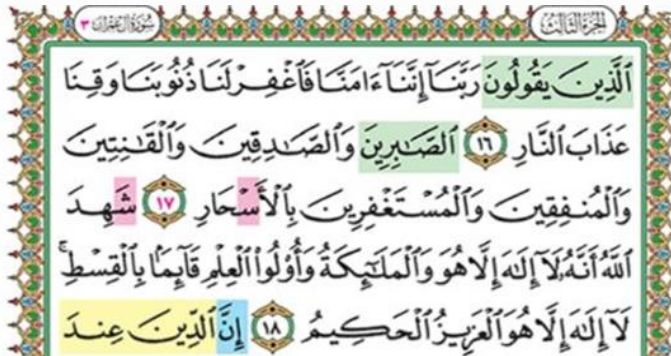 الجزء الثالث
سورة آل عمران ٣
ٱلَّذِينَ يَقُولُونَ رَبَّنَآ إِنَّنَآ ءَامَنَّا فَٱغْفِرْ لَنَا ذُنُوبَنَا وَقِنَا
عَذَابَ ٱلنَّارِ ١٦ ٱلصَّـٰبِرِينَ وَٱلصَّـٰدِقِينَ وَٱلْقَـٰنِتِينَ
وَٱلْمُنفِقِينَ وَٱلْمُسْتَغْفِرِينَ بِٱلْأَسْحَارِ ١٧ شَهِدَ
ٱللَّهُ أَنَّهُۥ لَآ إِلَـٰهَ إِلَّا هُوَ وَٱلْمَلَـٰٓئِكَةُ وَأُو۟لُوا۟ ٱلْعِلْمِ قَآئِمًۢا بِٱلْقِسْطِ ۚ
لَآ إِلَـٰهَ إِلَّا هُوَ ٱلْعَزِيزُ ٱلْحَكِيمُ ١٨ إِنَّ ٱلدِّينَ عِندَ